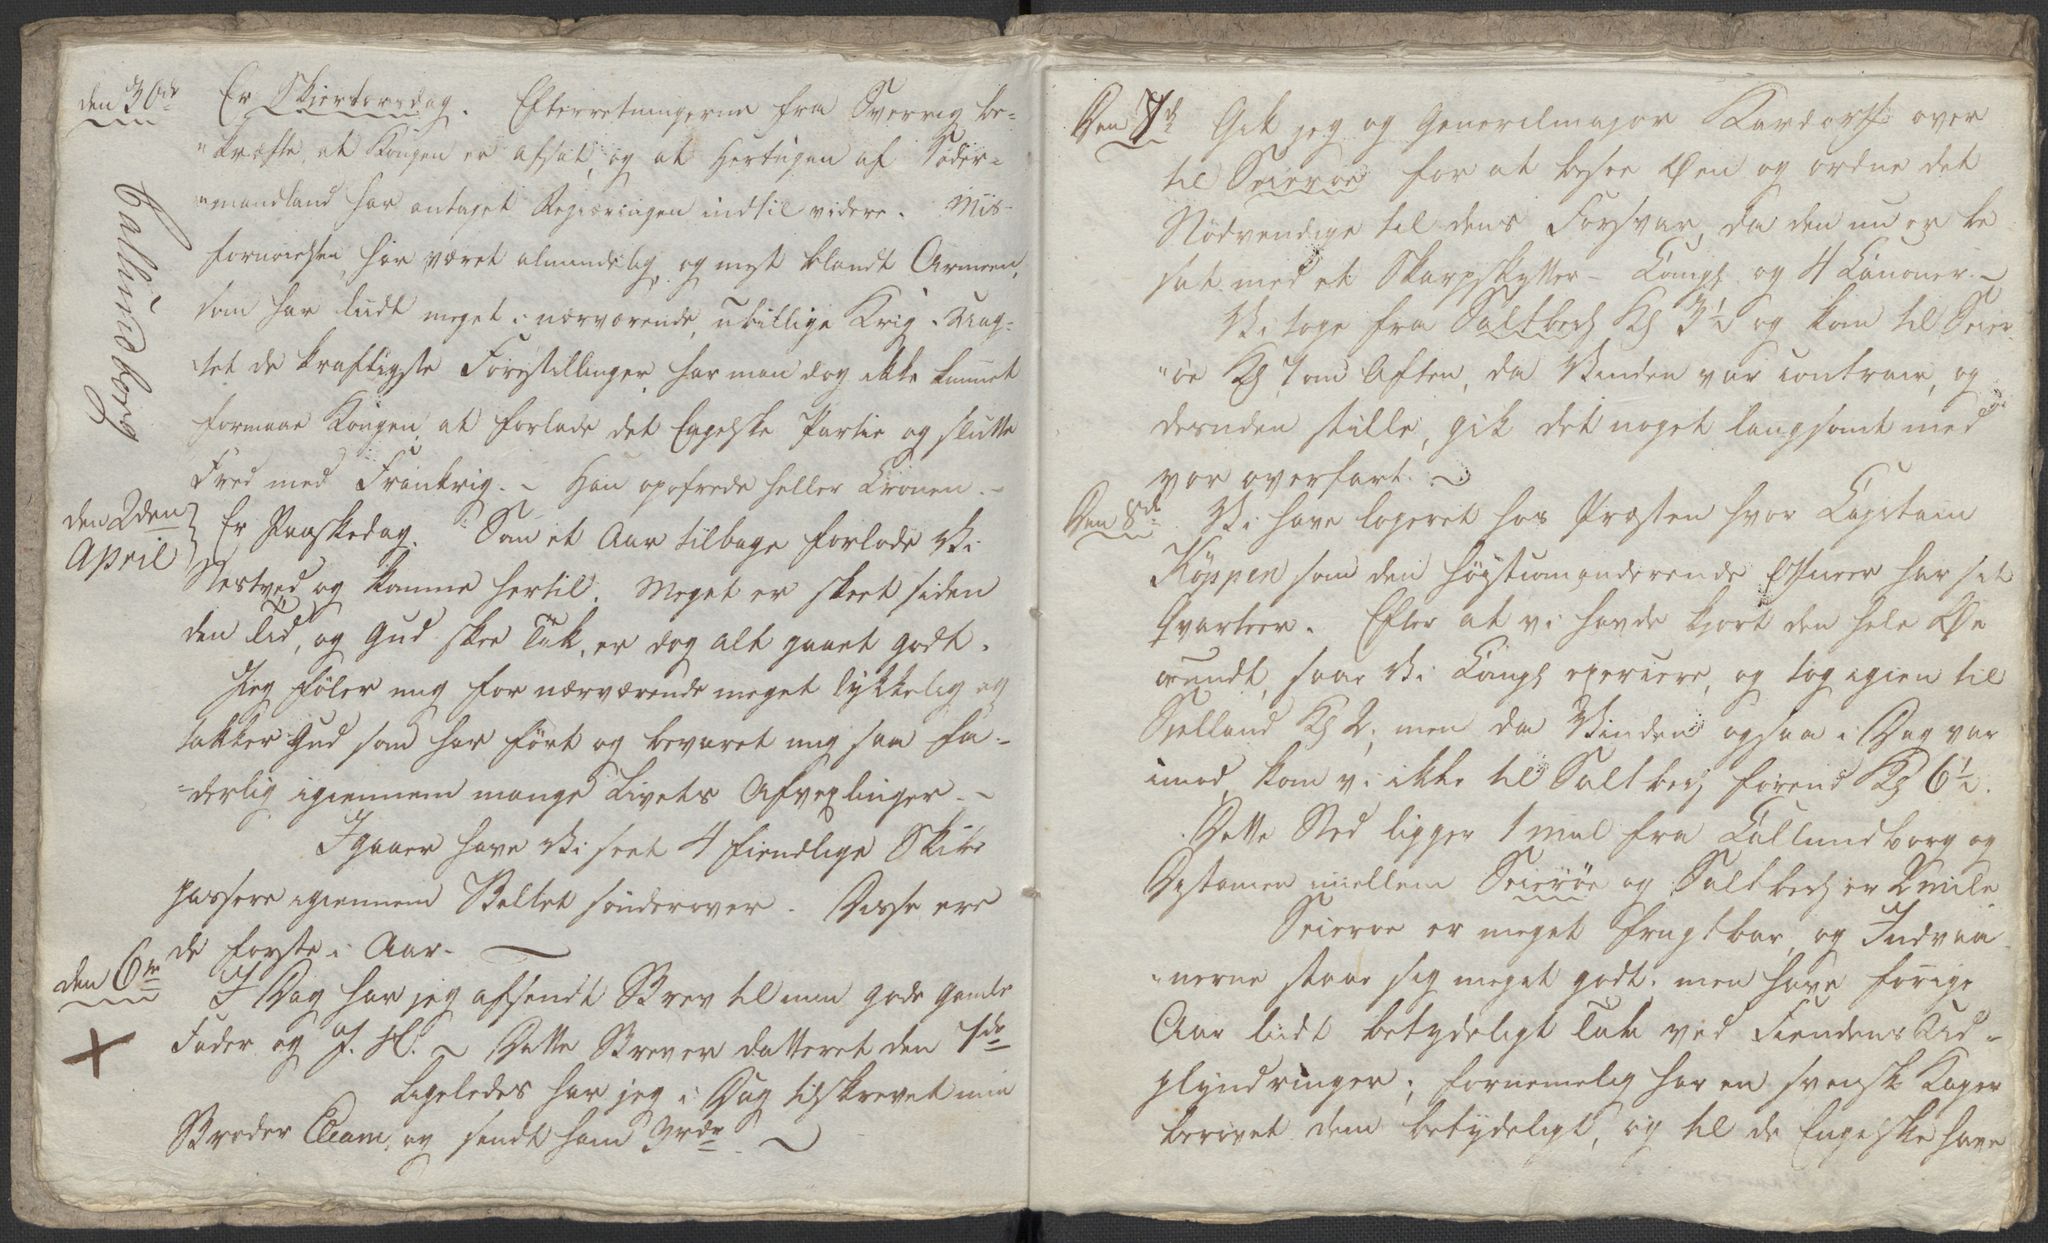 den 30de Er Skiertorsdag. Efterretningerne fra Sverrig be=
"kræfte, at Kongen er afsat, og at Hertugen af Söder=
"mandland har antaget Regieringen indtil videre. Mis-
fornøielsen har været almindelig, og mest blandt Armeen,
som har lidt meget i nærværende, ubillige Krig. Uag=
tet de kraftigste Forestillinger har man dog ikke kunnet
formaae Kongen, at forlade det Engelske Partie og slutte
Fred med Frankrig. - Han opofrede heller Cronen. -
Callundborg
den 2den April Er Paaskedag. Som et Aar tilbage forlode Vi
Nestved og komme hertil. Meget er skeet siden
den Tid, og Gud skee Tak, er dog alt gaaet godt.
Jeg föler mig for nærværende meget lykkelig og
takker Gud som har fört og bevaret mig saa fa-
"derlig igiennem mange Livets Afvexlinger. -
Igaaer have Vi seet 4 fiendlige Skibe
passere igiennem Beltet sönderover. Disse ere
de forste i Aar. -
den 6te I Dag har jeg afsendt Brev til min gode gamle
Fader og J. H. - Dette Brev er datteret den 1de
Ligeledes har jeg i Dag tilskrevet min
Broder og sendt ham
Den 7de Gik jeg og Generalmajor Kardorff over
til Seieroe for at besee Øen og ordne det
Nödvendige til dens Forsvar, da den nu er be
sat med et Skarpskytter- Comp: og 4 Canoner. -
Vi toge fra Saltbech Kl 3½ og kom til Seier
"öe Kl 7 om Aften, da Vinden var contrair, og
desuden stille, gik det noget langsomt med
vor overfart. -
Den 8de Vi have logeret hos Præsten hvor Capitain
Köppen som den höistcommanderende Officer har sit
Qvarteer. Efter at vi havde kjört den hele Øe
rundt, saae Vi Comp: exercere, og tog igien til
Sjelland Kl 2; men da Vinden ogsaa i Dag var
imod, kom vi ikke til Saltbech förend Kl 6½.
Dette Sted ligger 1 Mul fra Callundborg og
Distancen imellem Seieröe og Saltbech er 2 Mile.
Seieroe er meget frugtbar, og Indvaa
"nerne staae sig meget godt; men have forige
Aar lidt betydeligt Tab ved Fiendens Ud-
plyndringer; fornemelig har en svensk Kaper
berövet dem betydeligt, og til de Engelske have